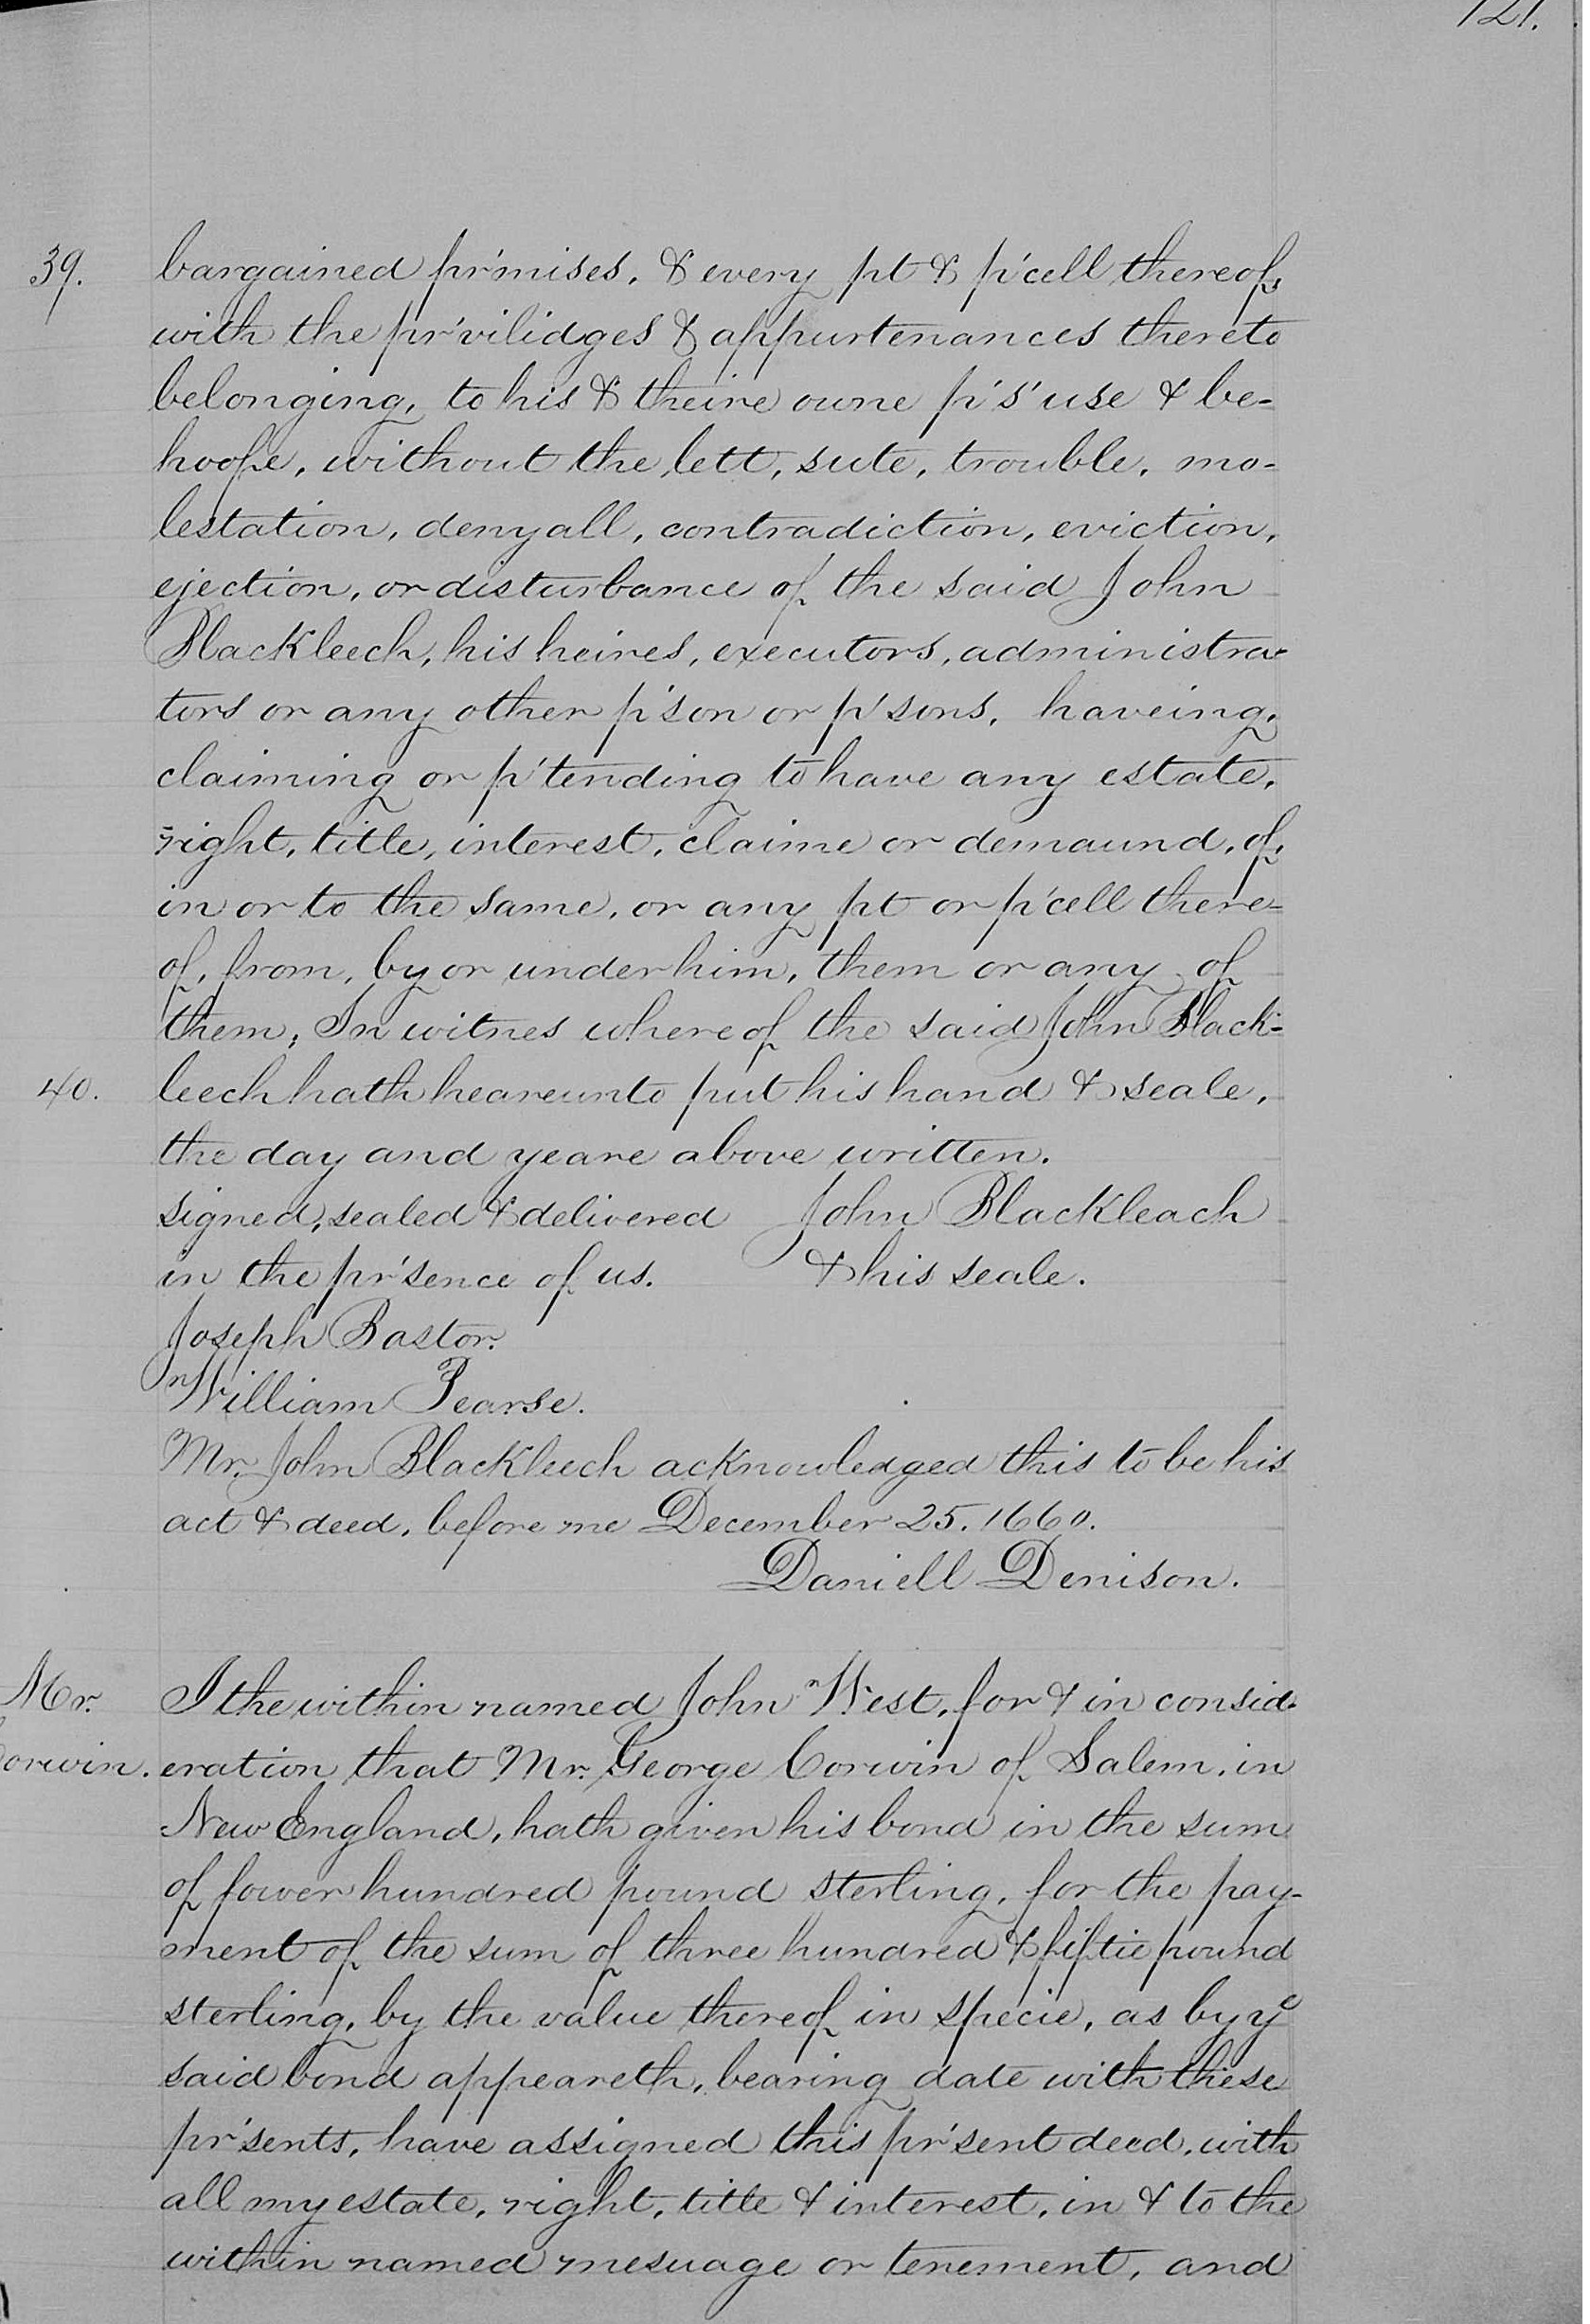 121.
39. bargained pr'mises, & every pt & p'cell thereof,
with the pr'vilidges & appurtenances thereto
belonging, to his & theire owne p's' use & be-
hoofe, without the lett, sute, trouble, mo-
lestation, denyall, contradiction, eviction,
ejection, or disturbance of the said John
Blackleech, his heires, executors, administra-
tors or any other p'son or p'sons, haveing,
claiming or p'tending to have any estate,
right, title, interest, claime or demaund, of,
in or to the same, or any pt or p'cell there-
of, from, by or under him, them or any of
them; In witnes whereof the said John Black-
40. leech hath heareunto put his hand & seale,
the day and yeare above written.
signed, sealed & delivered John Blackleach
in the pr'sence of us. & his seale.
Joseph Bastor.
William Pearse.
Mr. John Blackleech acknowledged this to be his
act & deed, before me December 25. 1660.
Daniell Denison.
Mr. I the within named John West, for & in consid-
Corwin. eration that Mr. George Corwin of Salem, in
New England, hath given his bond in the sum
of fower hundred pound sterling, for the pay-
ment of the sum of three hundred & fiftie pound
sterling, by the value thereof in specie, as by ye
said bond appeareth, bearing date with these
pr'sents, have assigned this pr'sent deed, with
all my estate, right, title & interest, in & to the
within named mesuage or tenement, and